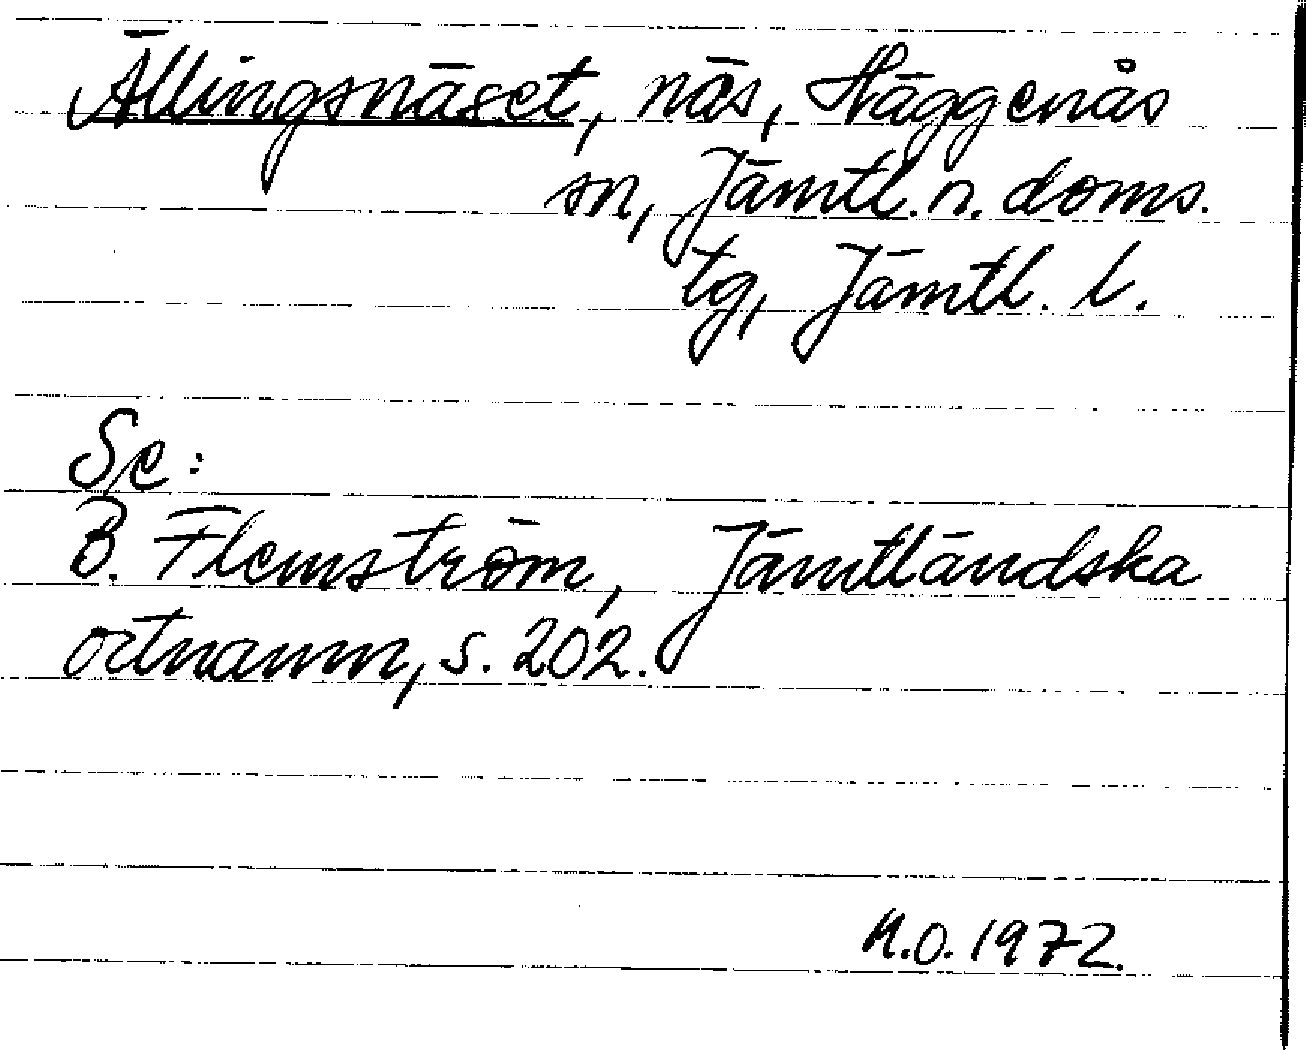 Ällingsnäset, näs, Häggenås
sn, Jämtl. n. doms.
tg, Jämtl. l.
Se:
B. Flemström, Jämtländska
ortnamn, s. 202.
M.O. 1972.